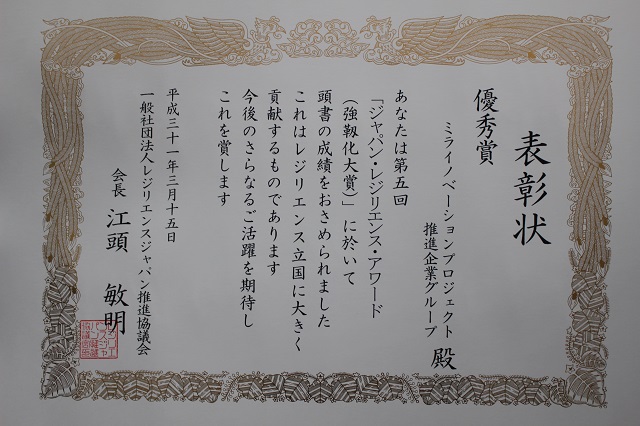 表彰状
優秀賞
ミライノベーションプロジェクト
推進企業グループ 殿
あなたは第五回
「ジャパン・レジリエンス・アワード
（強靱化大賞）」に於いて
頭書の成績をおさめられました
これはレジリエンス立国に大きく
貢献するものであります
今後のさらなるご活躍を期待し
これを賞します
平成三十一年三月十五日
一般社団法人レジリエンスジャパン推進協議会
会長 江頭 敏明